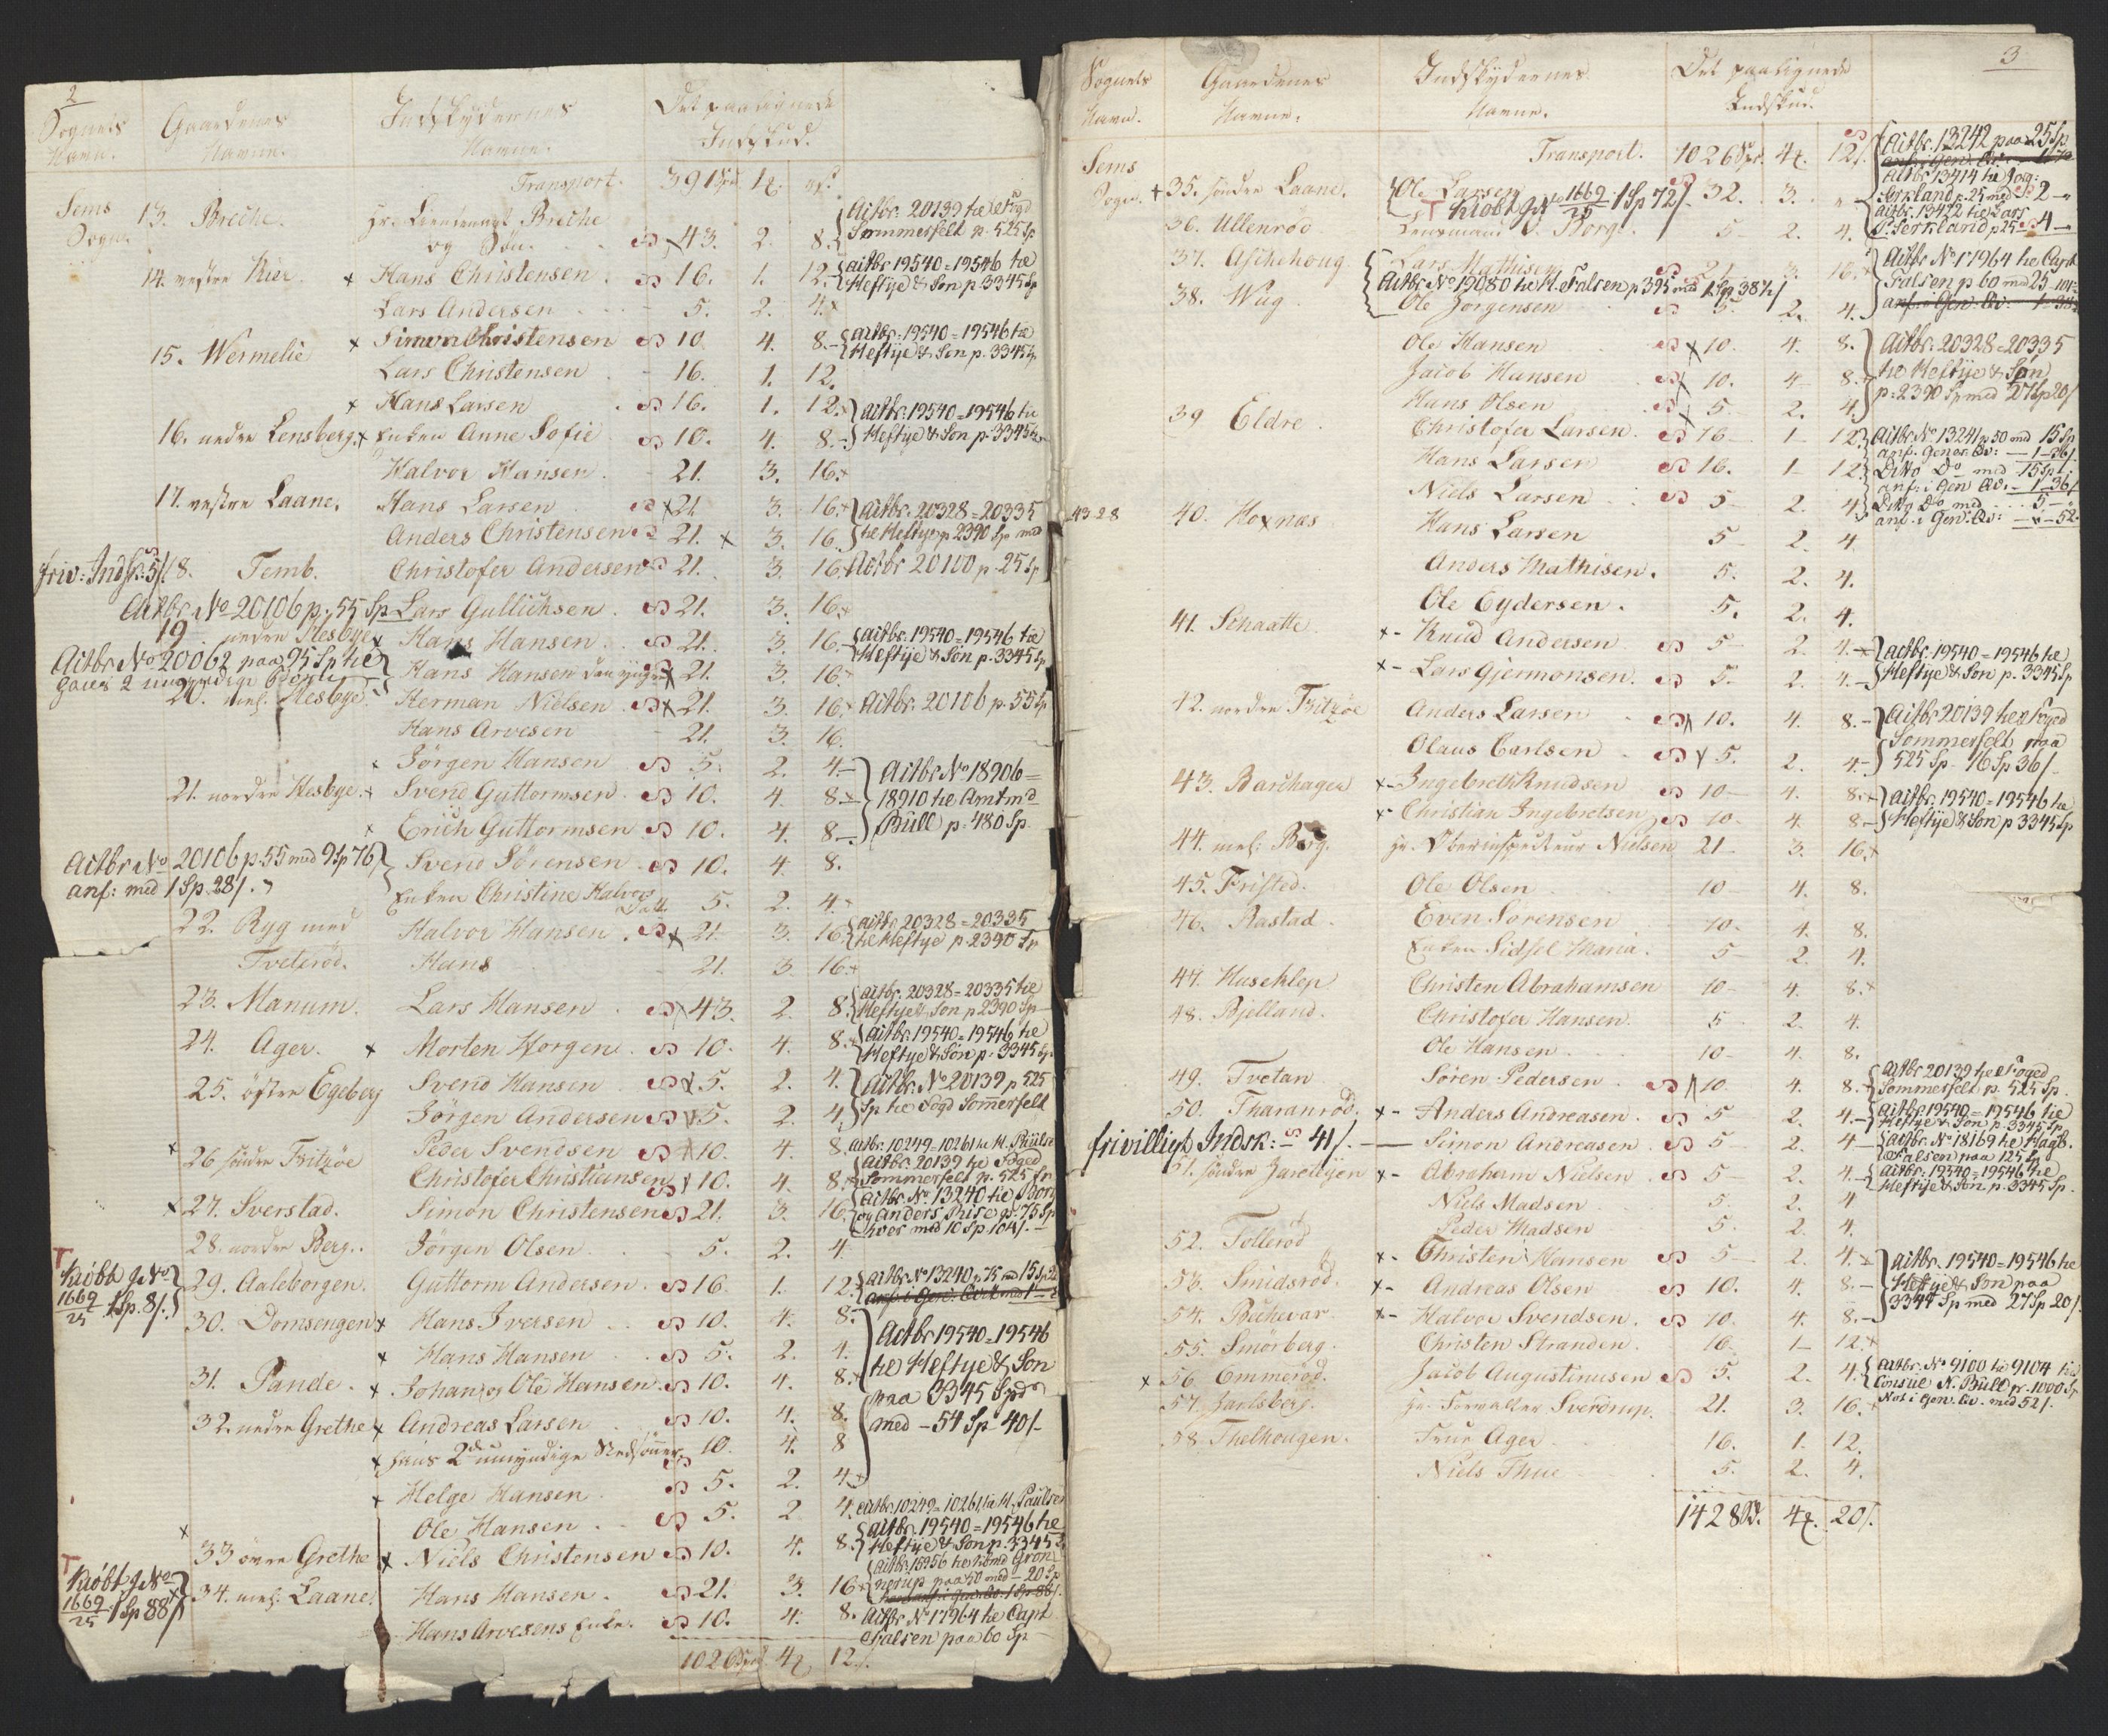 2
Sognets Navn. Gaardenes Navne. Indskydernes Navne. Det paalignede Indskud.
Transport. 391 Spd. 1
Sems Sogn. 13. Breche. Hr. Lieutenant Breche
og Søn. 43. 2. 8. Actbr. 20139 til Foged Sommerfelt p. 525 Sp
14. vestre Kier. x Hans Christensen. 16. 1. 12. Actbr. 19540=19546 til Heftye & Søn p. 3345 Sp
Lars Andersen 5. 2. 4.
15. Wermelie x Simon Christensen 10. 4. 8. Actbr. 19540=19546 til Heftye & Søn p. 3345 Sp
Lars Christensen 16. 1. 12.
x Hans Larsen 16. 1. 12. Actbr. 19540=19546 til
16. nedre Lensberg. x Enken Anne Sofie 10. 4. 8. Heftye & Søn p. 3345
Halvor Hansen. 21. 3. 16.
17. vestre Laane. Hans Larsen 21 3. 16. Actbr. 20328=20335
Anders Christensen 21. x 3. 16. til Heftye p. 2390 Sp med
friv: Indsk: 5/ 18. Temb. Christofer Andersen 21. 3. 16. Actbr 20100 p. 25 Sp
Actbr. No 20106 p. 55 Sp Lars Gullichsen. 21. 3. 16.
19. nedre Hesbye x Hans Hansen. 21. 3. 16. Actbr. 19540=19546 til Heftye & Søn p. 3345 Sp
Actbr No 20062 paa 95 Sp til Hans Hansen den yngre 21. 3. 16.
20. mel. Hesbye. Herman Nielsen. 21. 3. 16. Actbr. 20106 p. 55 Sp
Hans Arvesen 21. 3. 16.
x Jörgen Hansen 5. 2. 4. Actbr No 18906=
21. nordre Hesbye. x Svend Guttormsen 10. 4. 8. 18910 til Amtmd
x Erich Guttormsen 10. 4. 8. Büll p. 480 Sp
Actbr No 20106 p. 55 med 9 Sp 76 Svend Sörensen 10. 4. 8.
anf: med 1 Sp. 28/. Enken Christine Halvors Datt. 5. 2. 4.
22. Ryg med Halvor Hansen. 21. 3. 16. Actbr 20328=20335
Tveterød. Hans 21. 3. 16. til Heftye p. 2390 Sp
23. Manum. Lars Hansen 43. 2. 8. Actbr. 20328=20335 til Heftye & Søn p 2390 Sp
24. Ager. x Morten Horgen. 10. 4. 8. Actbr. 19540=19546 til Heftye & Søn p. 3345 Sp.
25. östre Egeberg Svend Hansen 5. 2. 4. Actbr. No 20139 p 525
Jörgen Andersen 5. 2. 4. Sp til Fogd Sommerfelt
x 26 søndre Fritzöe Peder Svendsen 10. 4. 8. Actbr. 10249=10261 til H.
Christofer Christiansen 10. 4. 8. Actbr. 20139 til Foged Sommerfelt p. 525 Sp
x 27. Sverstad. Simon Christensen 21. 3. 16. Actbr. No. 13240 til Borg og Anders Riise p. 75 Sp hver med 10 Sp. 104/.
28. nordre Berg. Jörgen Olsen 5. 2. 4.
Kiöbt g No 1669/25 1 Sp. 8/. 29. Aaleborgen. Guttorm Andersen. 16. 1. 12. Actbr No 13240 p. 75 med 15 Sp
30. Domsengen x Hans Iversen 10. 4. 8. Actbr 19540=19546
x Hans Hansen 5. 2. 4. til Heftye & Søn
31. Pande. x Johan og Ole Hansen. 10. 4. 8. paa 3345 Spd
32. nedre Grethe x Andreas Larsen 10. 4. 8. med - 54 Sp 40/
x hans 2de umyndige Stedsönner 10. 4. 8
x Helge Hansen. 5. 2. 4.
Ole Hansen 5. 2. 4. Actbr. 10249=10261 til H. Paulsen
x 33 övre Grethe x Niels Christensen 10. 4. 8. Actbr. 19540=19546 til Heftye & Søn p. 3345
Kiöbt g No 1669/25 1 Sp 88/ 34. mel. Laane. Hans Hansen. 21. 3. 16.
Hans Arvesens Enke. 10. 4. 8. Actbr No 17964 til Capt. Falsen paa 60 Sp
1026 Spd 4 12/.
3
Sognets Navn. Gaardenes Navne. Indskydernes Navne. Det paalignede Indskud.
Transport. 1026 Spd. 4 12/. Actbr. 13242 paa 25 Sp
Sems Sogn. + 35. søndre Laane. Ole Larsen 32. 3. Actbr 13414 til Jorg: Serkland p. 25 med 2
Kiöbt g No 1669/25 1 Sp 72/
36. Ullenrød. Lensmand Borge. 5. 2. 4. Actbr. 13422 til Lars Serkland p 25 4
37. Aschehoug. Lars Mathisen 21. 3. 16. Actbr No 17964 til Capt.
Actbr No 19080 til H. Falsen p 395 med 1 Sp 38½/ Falsen p 60 med 25
38. Wiig Ole Jörgensen 5. 2. 4.
Ole Hansen 10. 4. 8. Actbr. 20328=20335
Jacob Hansen 10. 4 8. til Heftye & Søn
Hans Olsen 5. 2. 4. p. 2390 Sp med 27 Sp 20/
39 Eldre. Christofer Larsen. 16 1 12. Actbr No 13241 p 50 med 15 Sp
anf. i Gener. Qv: 1-36/
Hans Larsen 16. 1 12. Ditto Do med 15 Sp
anf. i Gen Qv. 1-36/
Niels Larsen 5 2. 4. Ditto Do med 5
4328 40. Hoxnæs Hans Larsen 5 2. 4. anf. i Gen. Qv: 52.
Anders Mathisen. 5. 2. 4.
Ole Eydersen. 5. 2. 4.
41. Schaatte. x- Knud Andersen 5 2. 4. Actbr. 19540=19546 til
x- Lars Gjermonsen. 5. 2. 4. Heftye & Søn p. 3345 Sp
42. nordre Fritzöe Anders Larsen 10. 4. 8. Actbr 20139 til Foged
Olaus Carlsen 5. 2. 4. Sommerfelt paa 525 Sp - 16 Sp 36/
43. Barchager x- Ingebreth Knudsen 10 4. 8. Actbr. 19540=19546 til
x- Christian Ingebretsen 10. 4. 8. Heftye & Søn p 3345 Sp
44. mel: Berg. Hr. Oberinspecteur Nielsen 21 3. 16.
45. Fristed. Ole Olsen 10 4. 8.
46. Rastad. Even Sörensen 10. 4. 8.
Enken Sidsel Maria. 5 2. 4.
47. Huseklep Christen Abrahamsen 10 4. 8.
48. Bjelland. Christofer Hansen. 5 2. 4.
Ole Hansen 10 4. 8.
49. Tvetan Sören Pedersen 10. 4. 8. Actbr 20139 til Foged Sommerfelt p. 525 Sp.
50. Tharanrød. x- Anders Andreasen. 5 2. 4. Actbr. 19540=19546 til Heftye & Søn p. 3345 Sp
frivilligt Indsk: 41/. Simon Andreasen. 5 2. 4 Actbr. No 18169 til Hagb. Falsen paa 125 Sp
51. søndre Jareteigen x- Abraham Nielsen 5 2. 4. Actbr. 19540=19546 til Heftye & Søn p. 3345 Sp.
Niels Madsen 5. 2. 4
Peder Madsen 5. 2. 4.
52. Tollerød x- Christen Hansen 5 2. 4. Actbr. 19540=19546 til
53. Smidsrød. x- Andreas Olsen 10. 4. 8. Heftye & Søn paa
54. Buhevar. x- Halvor Svendsen. 10. 4. 8. 3344 Sp med 27 Sp 20/.
55. Smörberg. Christen Stranden. 16. 1 12.
x 56 Ommerød. Jacob Augustinusen 5. 2. 4. Actbr. No 9100 til 9104 til Consul N. Bull p. 1000 Sp
57. Jarlsberg. Hr. Forvalter Sverdrup. 21. 3. 16. Not i Gen. Qv. med 52/.
58. Thelhougen. Frue Ager 16. 1. 12.
Niels Thue 5. 2. 4.
1428 Sp. 4 20/.